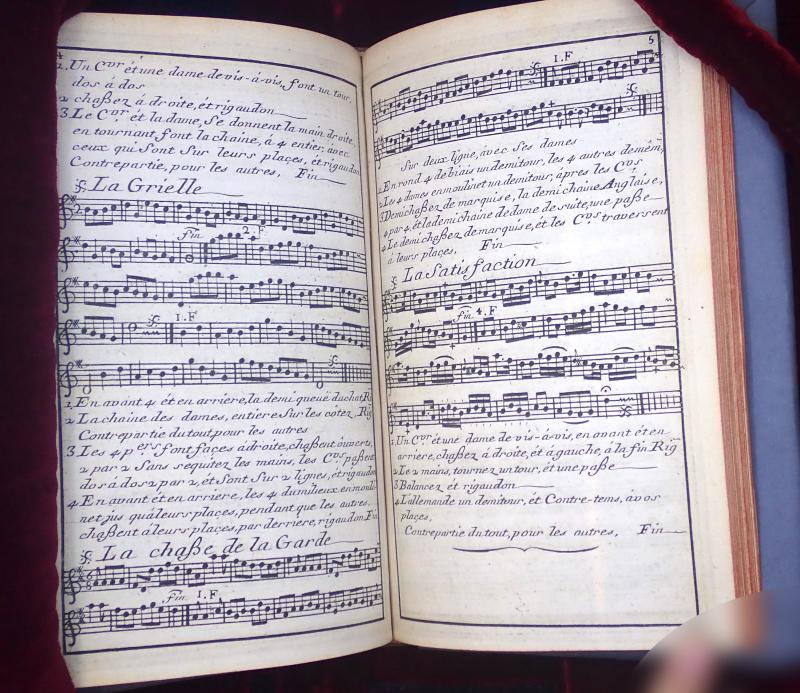 4
1. Un Cvr. ét une dame de vis-á-vis, font un tour,
dos á dos
2 chaßez á droite, ét rigaudon
3. Le Cvr. ét la dame, Se donnent la main droite,
en tournant, font la chaine, á 4 entier, avec
ceux qui Sont Sur leurs plaçes, ét rigaudon
Contrepartie, pour les autres, Fin
La Grielle
fin 2.F
1.F
1. En avant 4 ét en arriere, la demi queuë du chat, Rig
2 La chaine des dames, entiere Sur les cotéz, Rig
Contrepartie du tout, pour les autres
3. Les 4 pers. font façes á droite, chaßent óuverts,
2 par 2 Sans se quitez les mains, les Cvs. paßent
dos á dos 2 par 2, ét Sont Sur 2 lignes, ét rigaudon
4 En avant ét en arriere, les 4 du milieu en mouli-
net jus qu'á leurs plaçes, pendant que les autres
chaßent á leurs plaçes, par derriere, rigaudon Fin
La chaße de la Garde
fin 1.F
5
1.F
Sur deux ligne, avec Ses dames
1 En rond 4 de biais un demi tour, les 4 autres de mêm,
2 Les 4 dames en moulinet un demi tour, áprés les Cvs.
3 Demi chaßez de marquise, la demi chaine Anglaise,
4 par 4, ét la demi chaine de dame de suite, une paße
4 Le demi chaßez de marquise, ét les Cvs. traversent
á leurs plaçes, Fin
La Satisfaction
fin 4.F
1 Un Cvr. ét une dame de vis-á-vis, en avant ét en
arriere, chaßez á droite, ét á gauche, á la fin Rig
2 Le 2 mains, tournez un tour, ét une paße
3 Balancez ét rigaudon
4 L'allemande un demi tour, ét Contre-tems, á vos
plaçes,
Contrepartie du tout, pour les autres, Fin